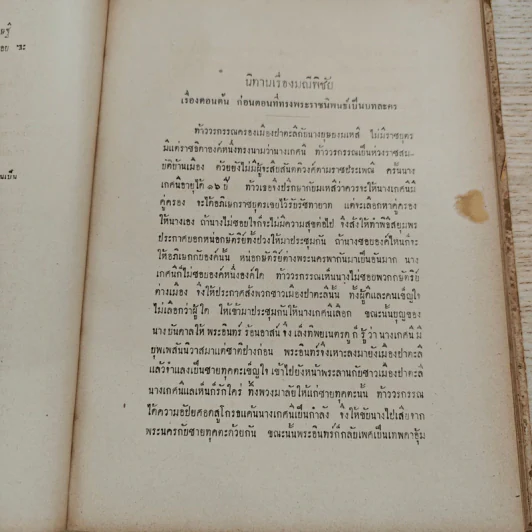 ษฐิ
อย ขะ
นเป็น
นิทานเรื่องมณีพิชัย
เรื่องตอนต้น ก่อนตอนที่ทรงพระราชนิพนธ์เป็นบทละคร
ท้าววรกรรณครองเมืองปาตะลิกับนางบุษยงมเหสี ไม่มีราชบุตร
มีแต่ราชธิดาองค์หนึ่งทรงนามว่านางเกศนี ท้าววรกรรณเป็นห่วงราชสม-
บัติบ้านเมือง ด้วยยังไม่มีผู้จะสืบสันตติวงศ์ตามราชประเพณี ครั้นนาง
เกศนีอายุได้ ๑๖ ปี ท้าวเธอจึงปรึกษากับมเหสีว่าควรจะให้นางเกศนีมี
คู่ครอง จะได้อภิเษกราชบุตรเขยไว้รับรัชทายาท แต่จะเลือกหาคู่ครอง
ให้นางเอง ถ้านางไม่ชอบใจก็จะไม่มีความสุขต่อไป จึงสั่งให้ทำพิธีสยุมพร
ประกาศบอกหน่อกษัตริย์ทั้งปวงให้มาประชุมกัน ถ้านางชอบองค์ไหนก็จะ
ให้อภิเษกกับองค์นั้น หน่อกษัตริย์ต่างพระนครพากันมาเป็นอันมาก นาง
เกศนีก็ไม่ชอบองค์หนึ่งองค์ใด ท้าววรกรรณเห็นนางไม่ชอบพวกกษัตริย์
ต่างเมือง จึงให้ประกาศสั่งพวกชาวเมืองปาตะลินั้น ทั้งผู้ดีและคนเข็ญใจ
ไม่เลือกว่าผู้ใด ให้เข้ามาประชุมกันให้นางเกศนีเลือก ขณะนั้นบุญของ
นางบันดาลให้พระอินทร์ร้อนอาสน์ จึงเล็งทิพยเนตรดูก็รู้ว่านางเกศนีมี
บุพเพสันนิวาสมาแต่ชาติปางก่อน พระอินทร์จึงเหาะลงมายังเมืองปาตะลิ
แล้วจำแลงเป็นชายทุคตะเข็ญใจ เข้าไปยังหน้าพระลานกับชาวเมืองปาตะลิ
นางเกศนีแลเห็นก็รักใคร่ ทิ้งพวงมาลัยให้แก่ชายทุคตะนั้น ท้าววรกรรณ
ได้ความอัปยศอดสูโกรธแค้นนางเกศนีเป็นกำลัง จึงให้ขับนางไปเสียจาก
พระนครกับชายทุคตะด้วยกัน ขณะนั้นพระอินทร์ก็กลับเพศเป็นเทพดาอุ้ม